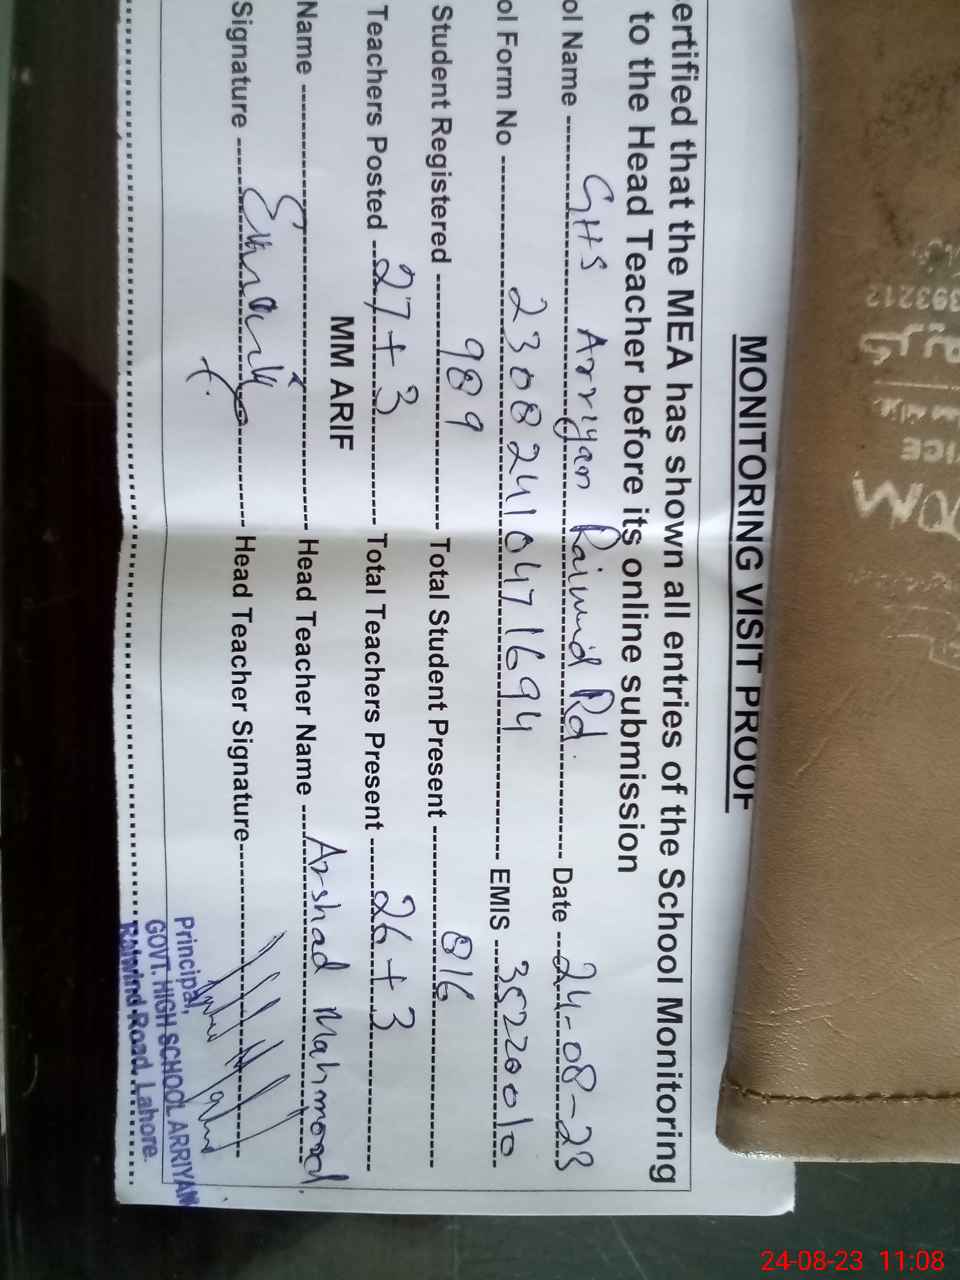 MONITORING VISIT PROOF
ertified that the MEA has shown all entries of the School Monitoring
to the Head Teacher before its online submission
ol Name GHS Arriyan Raiwind Rd. Date 24-08-23
ol Form No 23082410471694 EMIS 35220010
Student Registered 989 Total Student Present 816
Teachers Posted 27+3 Total Teachers Present 26+3
MM ARIF
Name Head Teacher Name Arshad Mahmood.
Signature Head Teacher Signature
Principal,
GOVT. HIGH SCHOOL ARRIYAN
Raiwind Road, Lahore.
393212
ICE
OOM
24-08-23 11:08